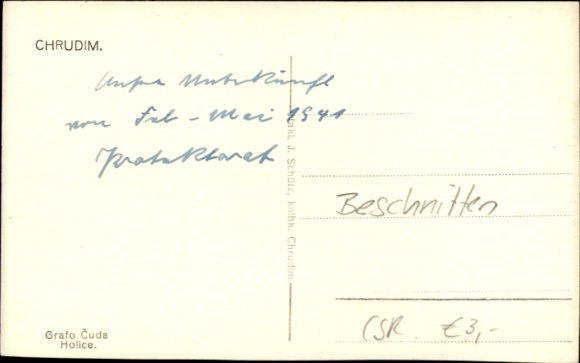 CHRUDIM.
Unsre Unterkünfte
von Feb - Mai 1941
Protektorat
Nakl. J. Schütz, knihk. Chrudim.
Beschnitten
CSR. €3,-
Grafo Čuda
Holice.